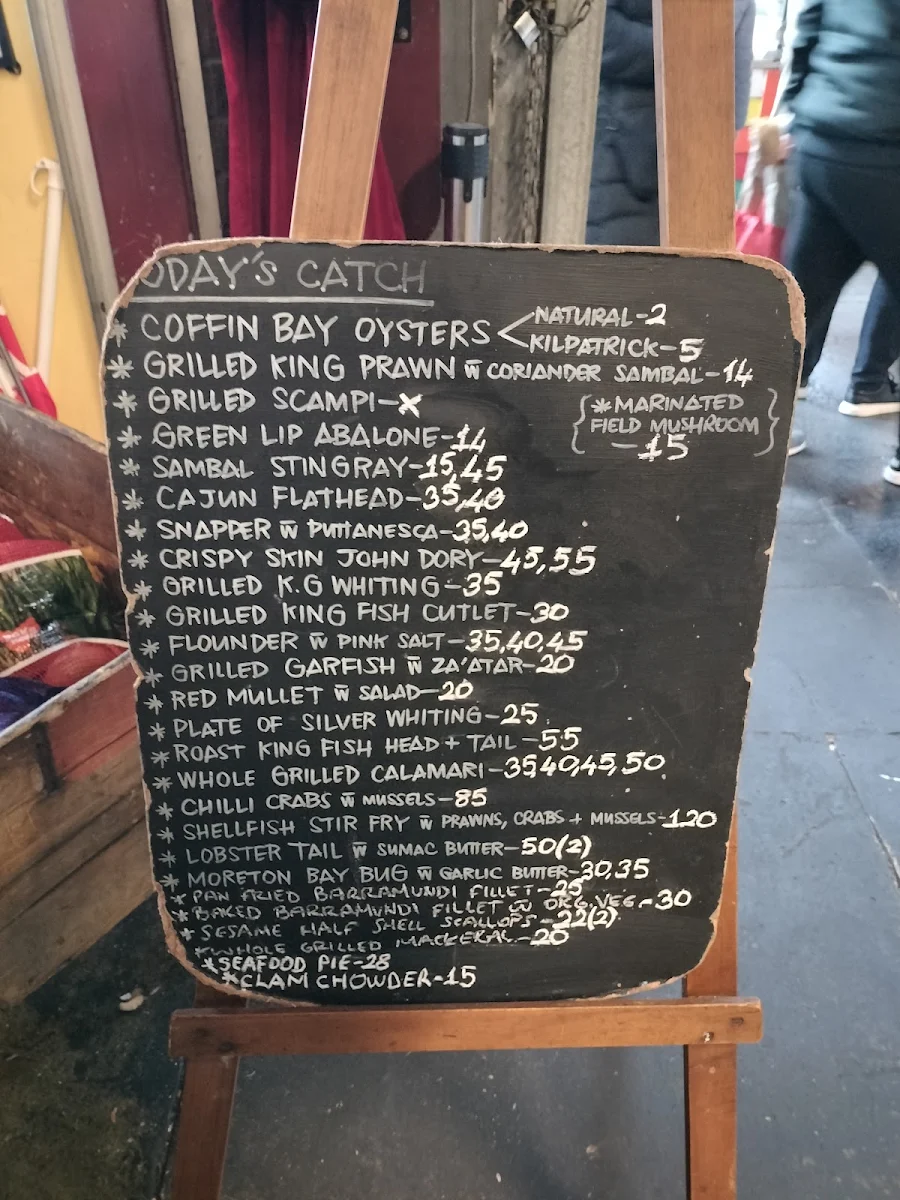 ODAY'S CATCH
* COFFIN BAY OYSTERS < NATURAL-2
KILPATRICK-5
* GRILLED KING PRAWN w̄ CORIANDER SAMBAL-14
* GRILLED SCAMPI-X
{*MARINATED
FIELD MUSHROOM}
-15
* GREEN LIP ABALONE-14
* SAMBAL STINGRAY-15,45
* CAJUN FLATHEAD-35,40
* SNAPPER w̄ PUTTANESCA-35,40
* CRISPY SKIN JOHN DORY-45,55
* GRILLED K.G WHITING-35
* GRILLED KING FISH CUTLET-30
* FLOUNDER w̄ PINK SALT-35,40,45
* GRILLED GARFISH w̄ ZA'ATAR-20
* RED MULLET w̄ SALAD-20
* PLATE OF SILVER WHITING-25
* ROAST KING FISH HEAD + TAIL-55
* WHOLE GRILLED CALAMARI-35,40,45,50
* CHILLI CRABS w̄ MUSSELS-85
* SHELLFISH STIR FRY w̄ PRAWNS, CRABS + MUSSELS-120
* LOBSTER TAIL w̄ SUMAC BUTTER-50(2)
* MORETON BAY BUG w̄ GARLIC BUTTER-30,35
* PAN FRIED BARRAMUNDI FILLET-25
* BAKED BARRAMUNDI FILLET w̄ ORG.VEG-30
* SESAME HALF SHELL SCALLOPS-22(2)
* WHOLE GRILLED MACKERAL-20
* SEAFOOD PIE-28
* CLAM CHOWDER-15